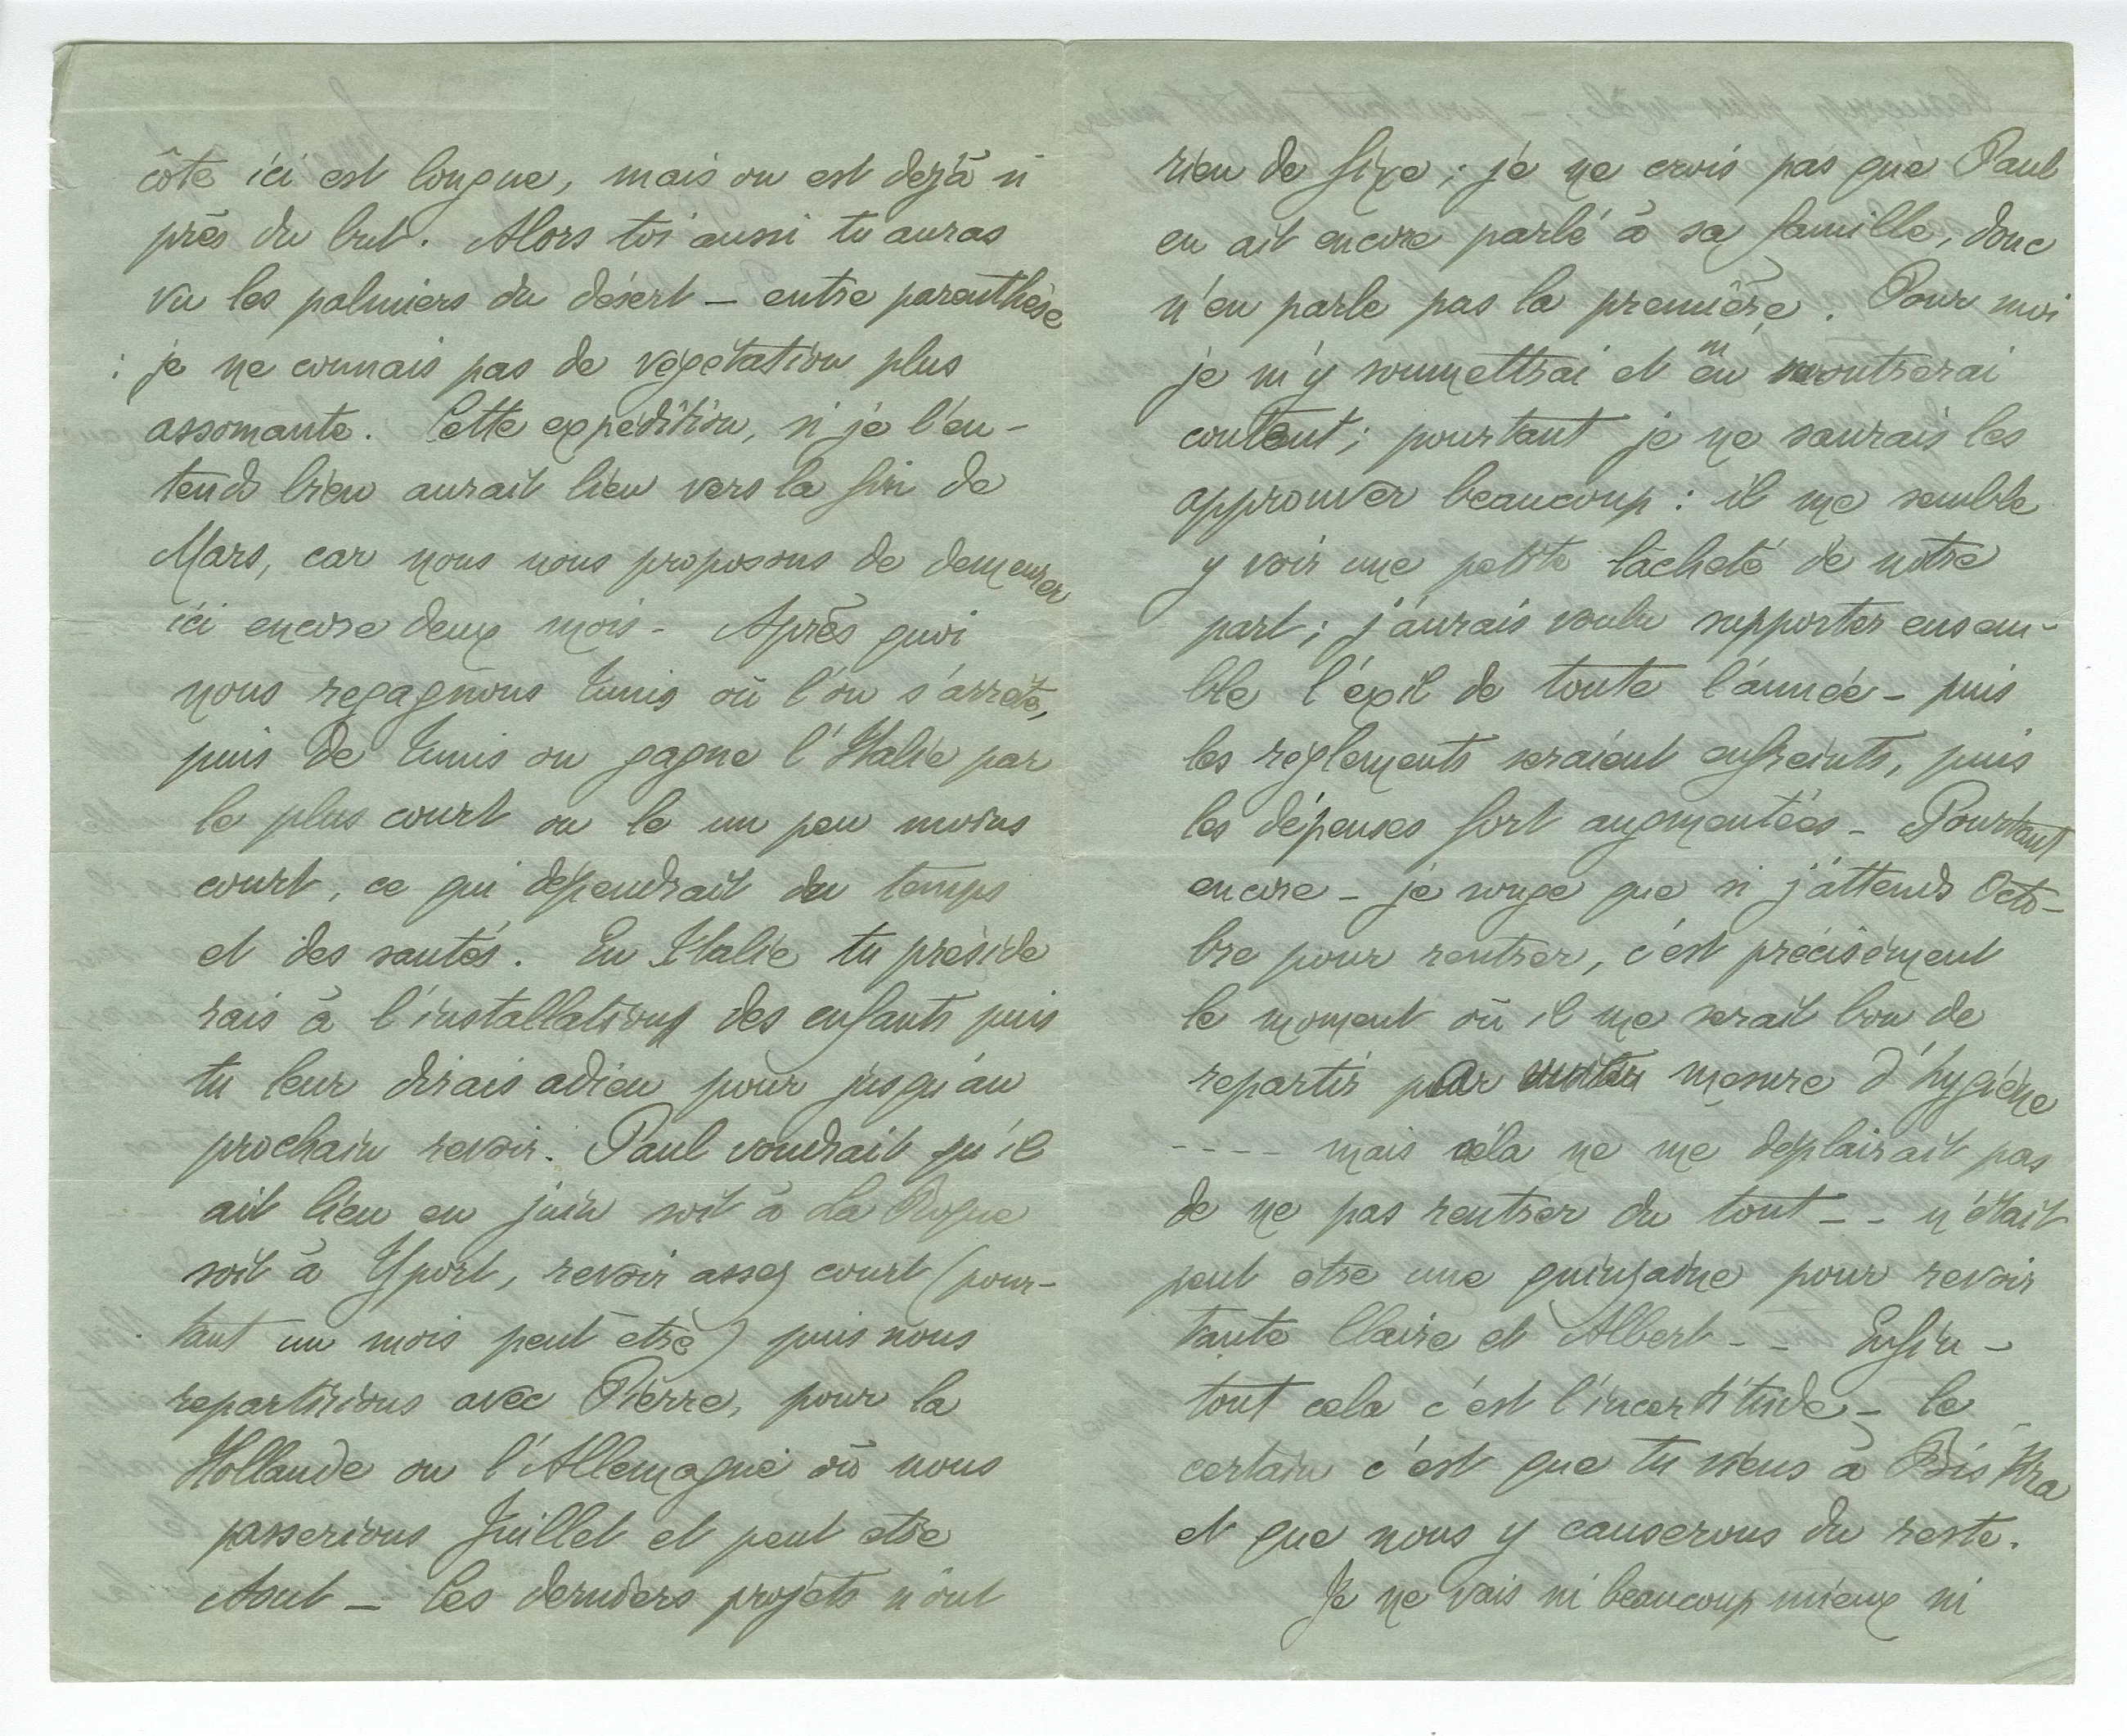 côté ici est longue, mais on est déjà si
près du but. Alors toi aussi tu auras
vu les palmiers du désert — entre parenthèse
: je ne connais pas de végétation plus
assomante. Cette expédition, si je l'en-
tends bien aurait lieu vers la fin de
Mars, car nous nous proposons de demeurer
ici encore deux mois - Après quoi
nous regagnons Tunis où l'on s'arrête,
puis de Tunis on gagne l'Italie par
le plus court ou le un peu moins
court, ce qui dépendrait du temps
et des santés. En Italie tu préside
rais à l'installation des enfants puis
tu leur dirais adieu pour jusqu'au
prochain revoir. Paul voudrait qu'il
ait lieu en juin soit à La Roque
soit à Yport, revoir assez court (pour-
tant un mois peut être) puis nous
repartirions avec Pierre, pour la
Hollande ou l'Allemagne où nous
passerions Juillet et peut etre
Aout — Ces derniers projets n'ont
rien de fixe ; je ne crois pas que Paul
en ait encore parlé à sa famille, donc
n'en parle pas la première. Pour moi
je m'y soumettrai et m'en montrerai
content ; pourtant je ne saurais les
approuver beaucoup : il me semble
y voir une petite lâcheté de notre
part ; j'aurais voulu supporter ensem-
ble l'exil de toute l'année - puis
les règlements seraient enfreints, puis
les dépenses fort augmentées - Pourtant
encore - je songe que si j'attends Octo-
bre pour rentrer, c'est précisément
le moment où il me serait bon de
repartir par mesure d'hygiène
---- mais cela ne me déplairait pas
de ne pas rentrer du tout -- n'était
peut être une quinzaine pour revoir
tante Claire et Albert -- Enfin -
tout cela c'est l'incertitude - le
certain c'est que tu viens à Biskra
et que nous y causerons du reste.
Je ne vais ni beaucoup mieux ni